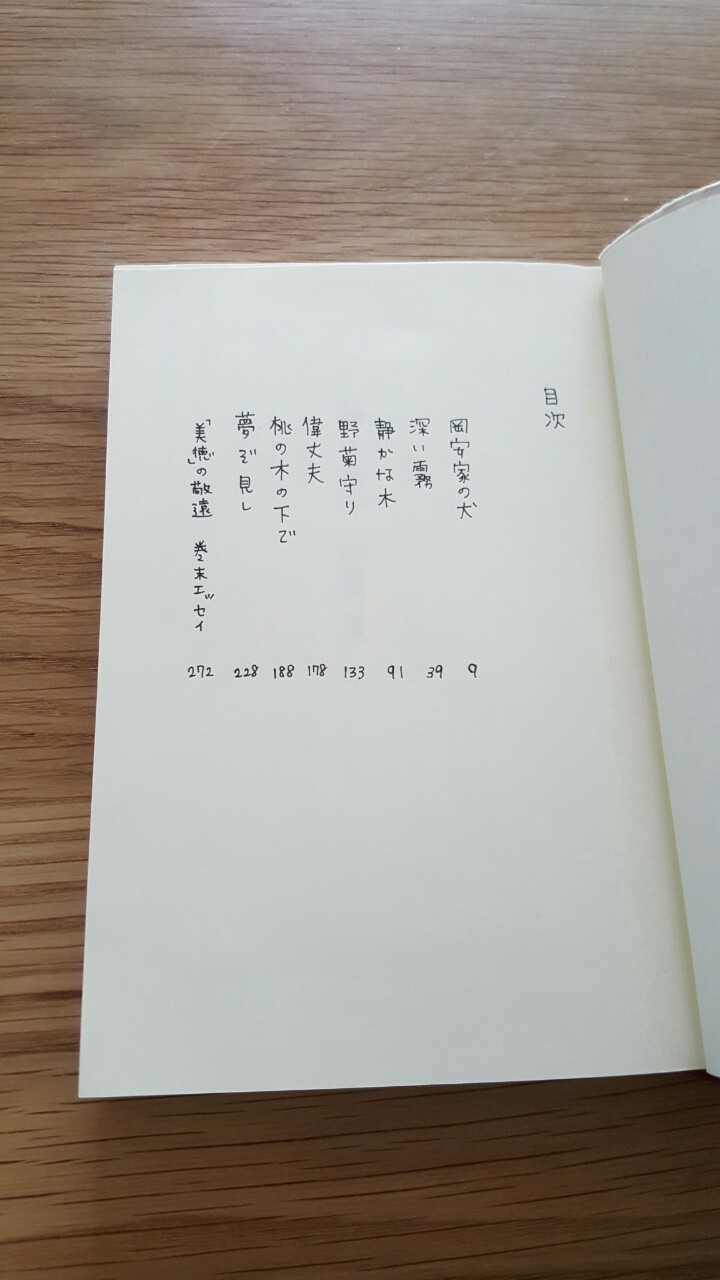 目次
岡安家の犬 9
深い霧 39
静かな木 91
野菊守り 133
偉丈夫 178
桃の木の下で 188
夢ぞ見し 228
「美徳」の敬遠 巻末エッセイ 272